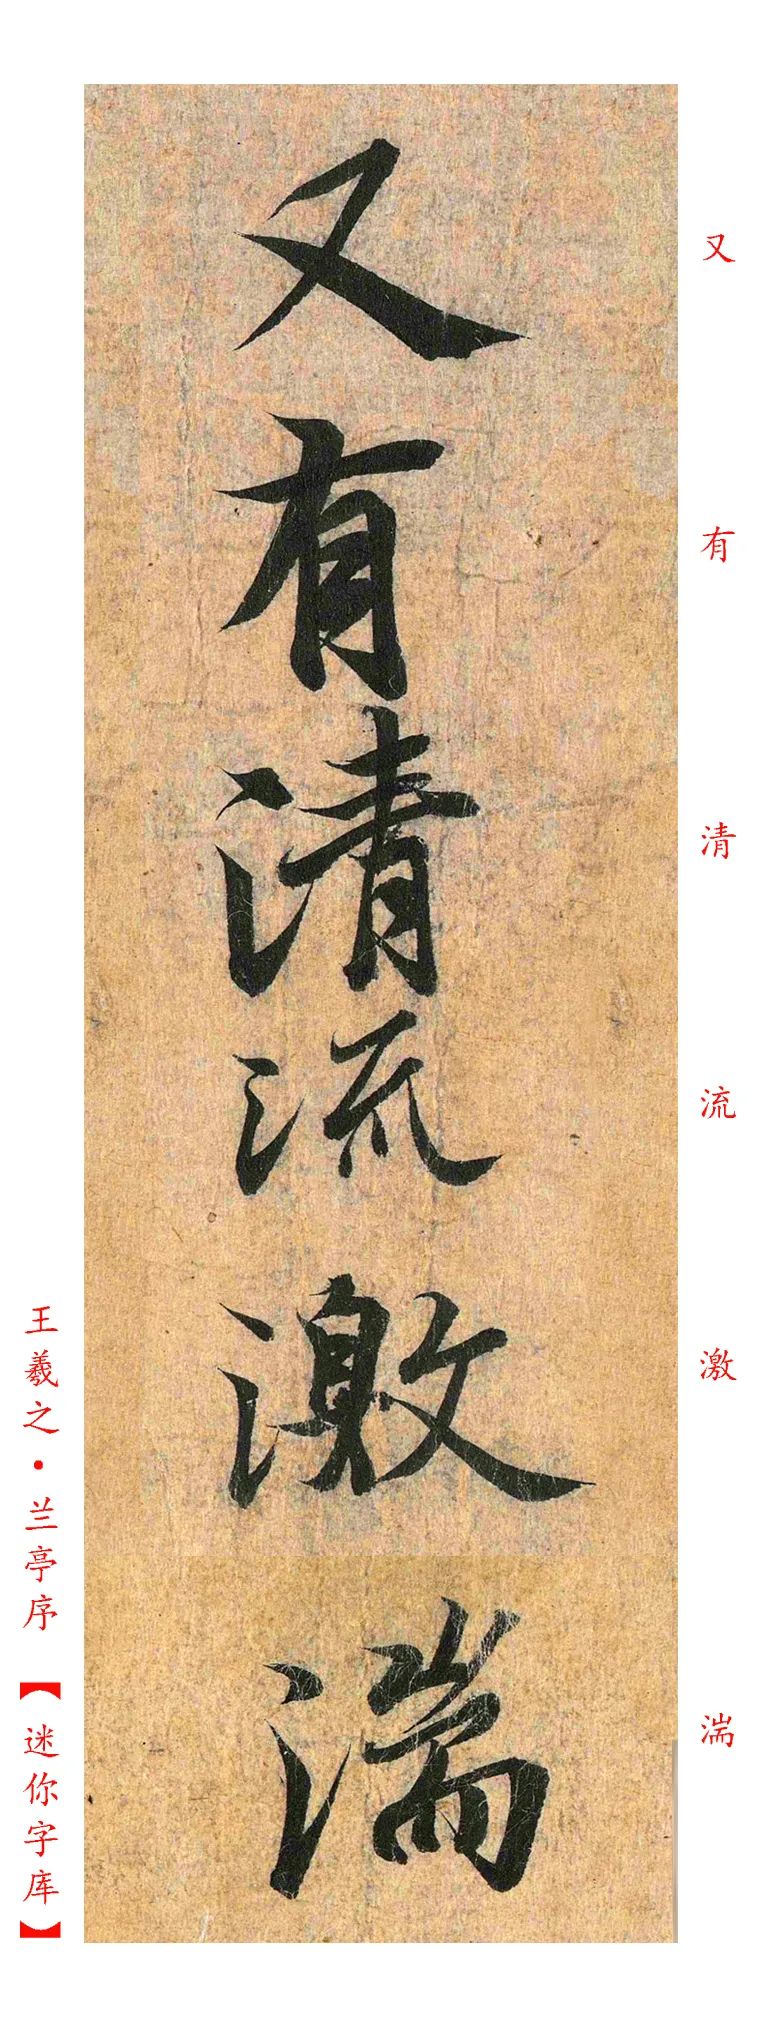 又有清流激湍
又有清流激湍
王羲之·兰亭序【迷你字库】